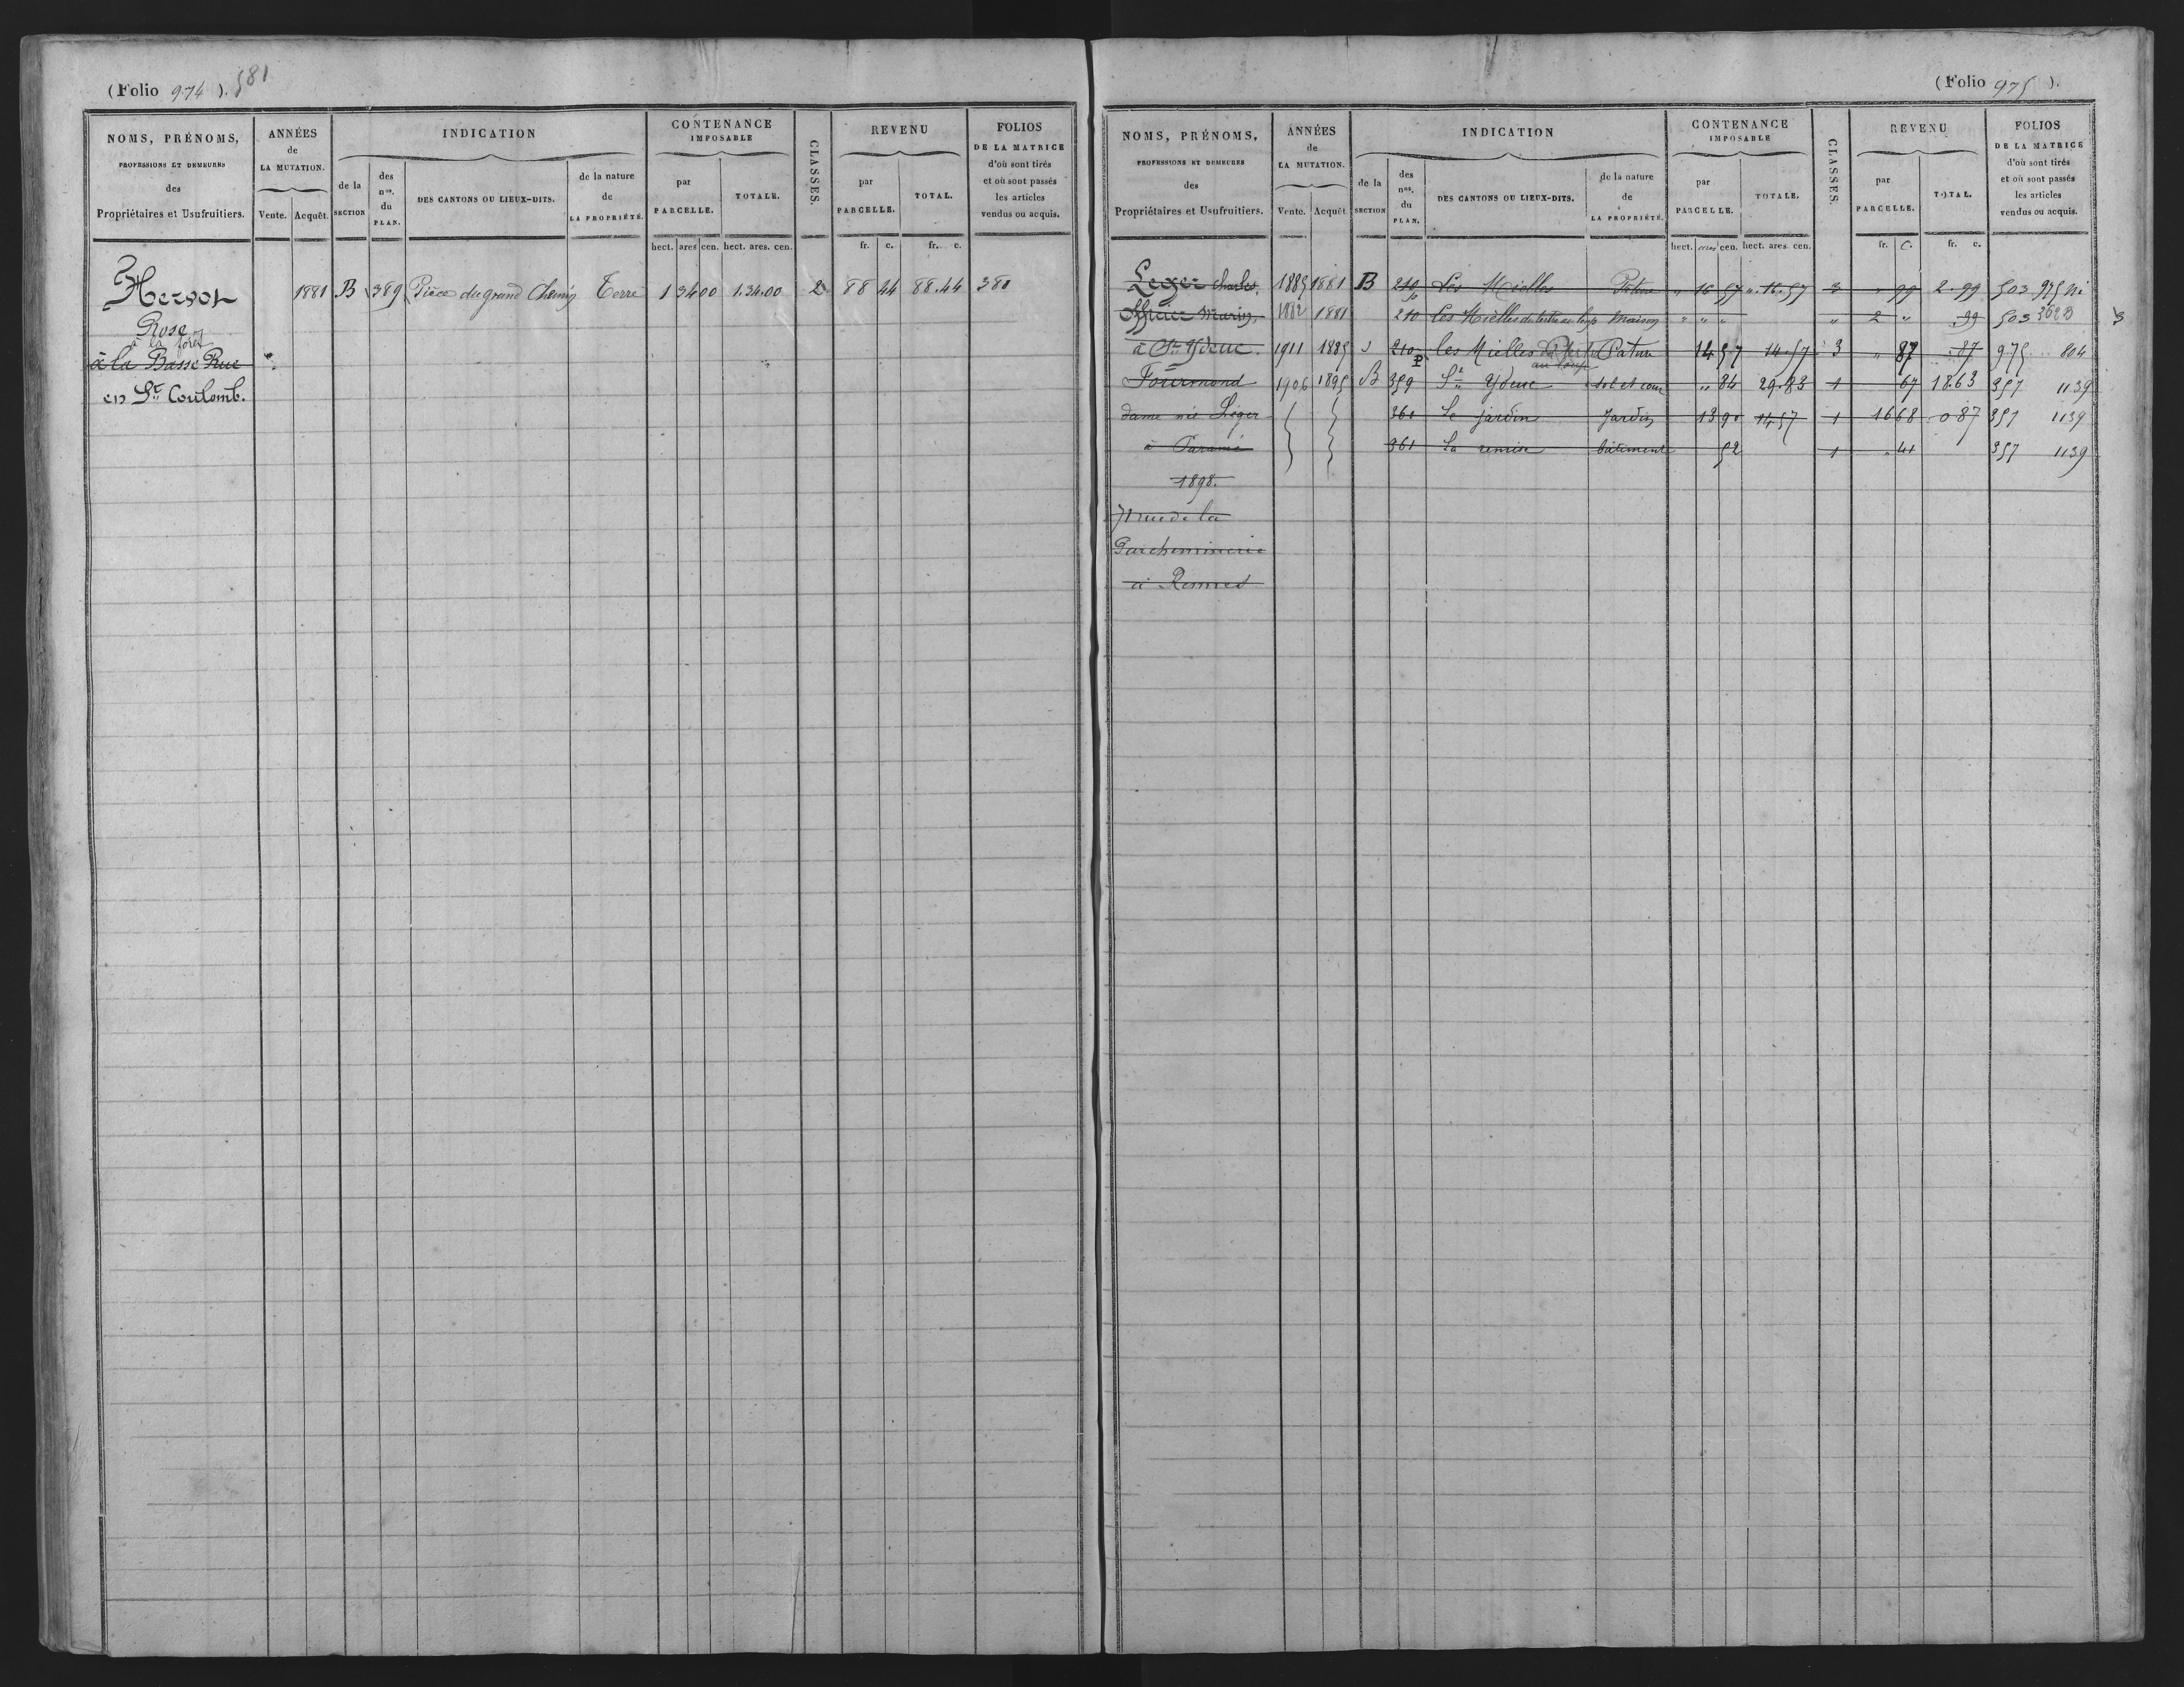 (Folio 974). 581
NOMS, PRÉNOMS,
PROFESSIONS ET DEMEURES
des
Propriétaires et Usufruitiers.
ANNÉES
de
LA MUTATION.
Vente. Acquêt.
INDICATION
de la
SECTION
des
nos.
du
PLAN.
DES CANTONS OU LIEUX-DITS.
de la nature
de
LA PROPRIÉTÉ.
CONTENANCE
IMPOSABLE
par
PARCELLE.
TOTALE.
CLASSES.
REVENU
par
PARCELLE.
TOTAL.
FOLIOS
DE LA MATRICE
d'où sont tirés
et où sont passés
les articles
vendus ou acquis.
hect. ares cen. hect. ares. cen. fr. c. fr. c.
1881 B 389 Pièce du grand Chemin Terre 1 34 00 1.34.00 2 88 44 88.44 380
Rose
à la forêt
à la Basse Rue
en St. Coulomb.
(Folio 975).
NOMS, PRÉNOMS,
PROFESSIONS ET DEMEURES
des
Propriétaires et Usufruitiers.
ANNÉES
de
LA MUTATION.
Vente. Acquêt
INDICATION
de la
SECTION
des
nos.
du
PLAN.
DES CANTONS OU LIEUX-DITS.
de la nature
de
LA PROPRIÉTÉ.
CONTENANCE
IMPOSABLE
par
PARCELLE.
TOTALE.
CLASSES.
REVENU
par
PARCELLE.
TOTAL.
FOLIOS
DE LA MATRICE
d'où sont tirés
et où sont passés
les articles
vendus ou acquis.
hect. ares cen. hect. ares. cen. fr. c. fr. c.
Leger Charles, 1885 1881 B 210 p Les Mielles Pature " 16 57 " 16.57 3 " 99 2.99 503 975
1882 1881 210 Les Mielles maison " " " " 2 " 99 503 362
à St. Ydeuc. 1911 1885 210 P Les Mielles au loup Pature 14 57 14.57 3 " 87 .87 975 804
Fourmond 1906 1895 B 359 St. Ydeuc sol et cour " 84 29.83 1 67 18.63 357 1139
dame née Léger 360 Le jardin Jardin 13 90 14 57 1 16 68 0 87 357 1139
à Paramé 361 La remise bâtiment 52 1 " 41 357 1139
1898.
rue de la
Parcheminerie
à Rennes